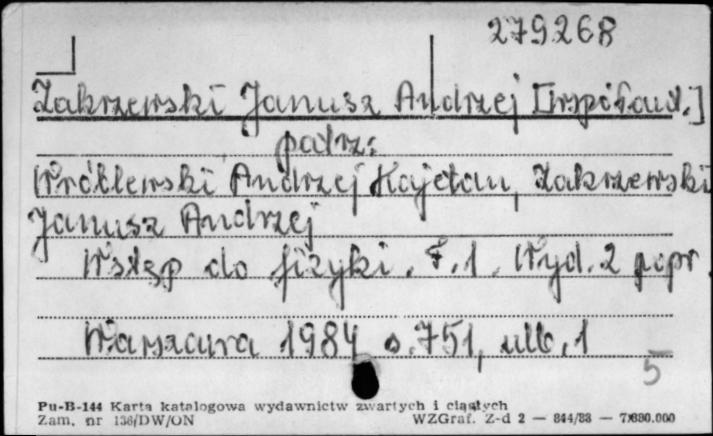 279268
Zakrzewski Janusz Andrzej [współaut.]
patrz:
Wróblewski Andrzej Kajetan, Zakrzewski
Janusz Andrzej
Wstęp do fizyki. T. 1. Wyd. 2 popr.
Warszawa 1984 s. 751, ulb. 1
5
Pu-B-144 Karta katalogowa wydawnictw zwartych i ciągłych
Zam. nr 136/DW/ON WZGraf. Z-d 2 — 844/83 —